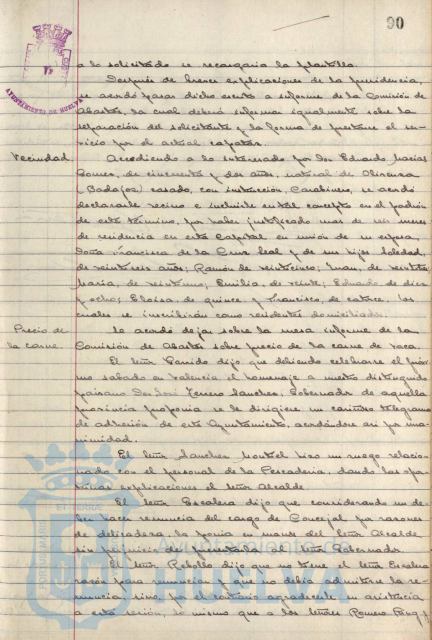 90
AYUNTAMIENTO DE HUELVA
a lo solicitado se recargaria la plantilla.
Después de breves explicaciones de la presidencia,
se acordó pasar dicho escrito a informe de la Comisión de
Abastos, la cual deberá informar igualmente sobre la
separación del solicitante y la forma de prestarse el ser-
vicio por el actual capataz.
Vecindad. Accediendo a lo interesado por Don Eduardo Macías
Gomez, de cincuenta y dos años, natural de Olivenza
(Badajoz) casado, con instrucción, Carabinero, se acordó
declararle vecino e incluirle en tal concepto en el padrón
de este término, por haber justificado mas de seis meses
de residencia en esta Capital en unión de su esposa,
Doña Francisca de la Cruz Leal y de sus hijos Soledad,
de veintiseis años; Ramón de veinticinco; Juan, de veintitrés;
María, de veintiuno; Emilia, de veinte; Eduardo de diez
y ocho; Eloisa, de quince y Francisco, de catorce, los
cuales se inscribirán como residentes domiciliados.
Precio de la carne. Se acordó dejar sobre la mesa informe de la
Comisión de Abastos sobre precio de la carne de vaca.
El Señor Garrido dijo que debiendo celebrarse el próxi-
mo sabado en Valencia el homenaje a nuestro distinguido
paisano Don José Terrero Sanchez, Gobernador de aquella
provincia proponia se le dirigiera un cariñoso telegrama
de adhesión de este Ayuntamiento, acordándose asi por una-
nimidad.
El Señor Sanchez Montiel hizo un ruego relacio-
nado con el personal de la Pescaderia, dando las opor-
tunas explicaciones el Señor Alcalde.
El Señor Escalera dijo que considerando un de-
ber hacer renuncia del cargo de Concejal por razones
de delicadeza, la ponia en manos del Señor Alcalde
sin perjuicio de presentarla al Señor Gobernador.
El Señor Rebollo dijo que no tiene el Señor Escalera
razón para renunciar y que no debía admitirse la re-
nuncia, sino, por el contrario agradecerle su asistencia
a esta sesión, lo mismo que a los Señores Romero